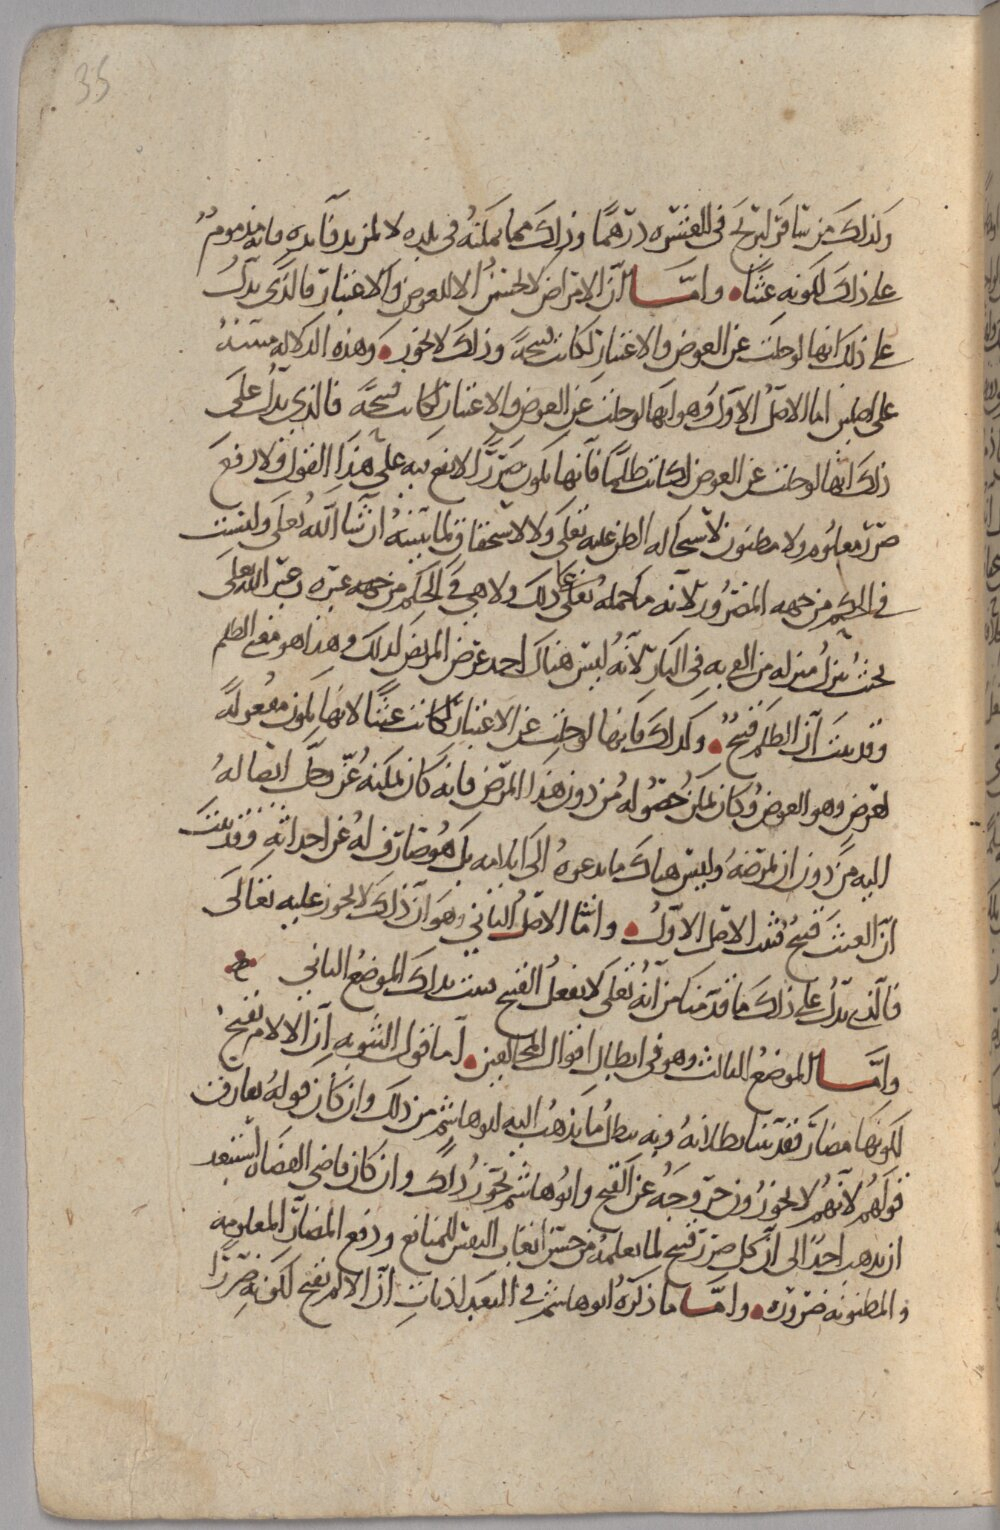 35
وكذلك من سافر ليربح في العشره درهما وذلك مما يمكنه في بلده لا لمزيد فآيده فانه مذموم
على ذلك لكونه عبثا وامــا ان الامراض لا تحسن الا للعوض والاعتبار فالذي يدل
على ذلك انها لو خلت عن العوض والاعتبار لكانت قبيحة وذلك لا يجوز وهذه الدلاله مبنيه
على اصلين اما الاصل الاول وهو انها لو خلت عن العوض والاعتبار لكانت قبيحة فالذي يدل على
ذلك انها لو خلت عن العوض لكانت ظلما فانها تكون ضررا لا نفع فيه على هذا القول ولا دفع
ضرر معلوم ولا مظنون لاستحاله الظن عليه تعلى ولا لاستحقاق لما نبينه ان شا الله تعلى وليست
في الحكم من جهه المضرور لانه ما حمله تعلى على ذلك ولا هي في الحكم من جهه غيره غير الله تعلى
بحيث ينزل منزله من القي به في النار لانه ليس هناك احد عرض المريض لذلك وهذا هو معنى الظلم
وقد بينا ان الظلم قبيح وكذلك فانها لو خلت عن الاعتبار لكانت عبثا لانها تكون مفعولة
لغرض وهو العوض وكان يمكن حصوله من دون هذا المرض فانه كان يمكنه عز وجل ايصاله
اليه من دون ان يمرضه وليس هناك ما يدعوه الى ايلامه بل هو صارف له عن احداثه وقد بينا
ان العبث قبيح فثبت الاصل الاول وامــا الاصل الثاني وهو ان ذلك لا يجوز عليه تعالى
فالذي يدل على ذلك ما قدمنا من انه تعلى لا يفعل القبيح فثبت بذلك الموضع الثاني
وامــا الموضع الثالث وهو في ابطال اقوال المخالفين اما قول الثنويه ان الالام تقبح
لكونها مضار فقد بينا بطلانه وبه يبطل ما يذهب اليه ابو هاشم من ذلك وان كان قوله يفارق
قولهم لانهم لا يجوزون خروجه عن القبح وابو هاشم يجوز ذلك وان كان قاضي القضاه استبعد
ان يذهب احد الى ان كل ضرر قبيح لما يعلمه من حسن اتعاب النفس للمنافع ودفع المضار المعلومه
والمظنونه ضروره وامــا ما ذكره ابو هاشم في البغداديات ان الالم يقبح لكونه ضررا